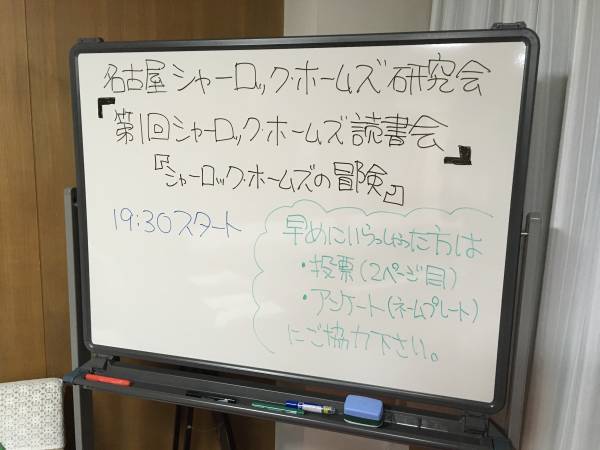 名古屋シャーロック・ホームズ研究会
『第1回シャーロック・ホームズ読書会』
『シャーロック・ホームズの冒険』
19:30スタート
早めにいらっしゃった方は
・投票(2ページ目)
・アンケート(ネームプレート)
にご協力下さい。